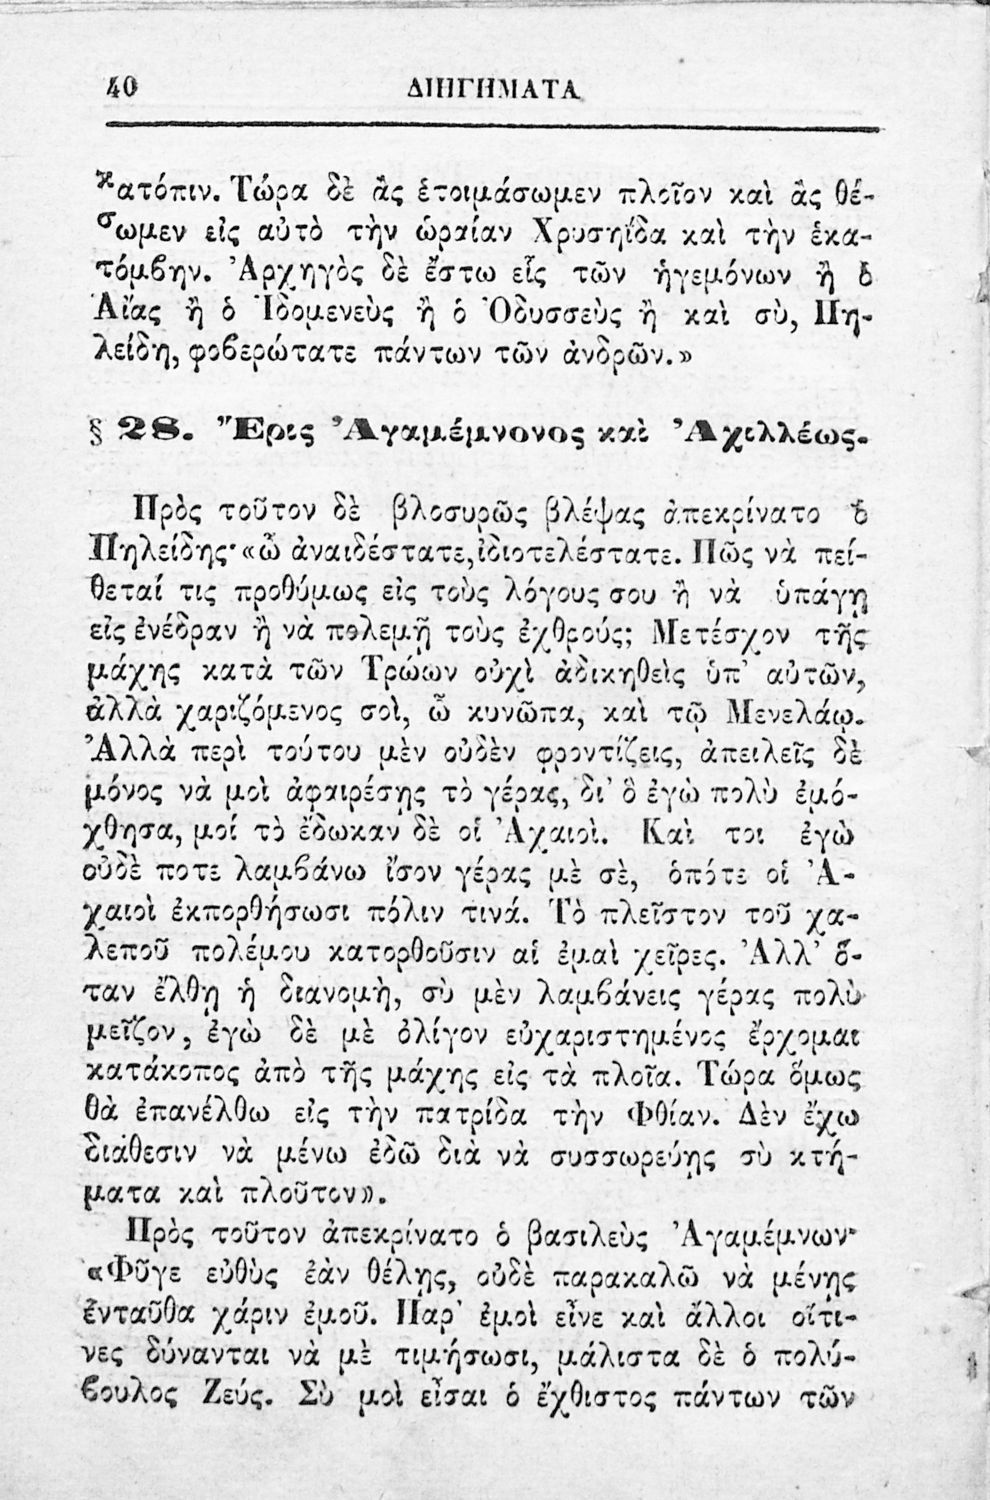 40 ΔΙΗΓΗΜΑΤΑ
κατόπιν. Τώρα δὲ ἂς ἑτοιμάσωμεν πλοῖον καὶ ἂς θέ-
σωμεν εἰς αὐτὸ τὴν ὡραίαν Χρυσηΐδα καὶ τὴν ἑκα-
τόμβην. Ἀρχηγὸς δὲ ἔστω εἷς τῶν ἡγεμόνων ἢ ὁ
Αἴας ἢ ὁ Ἰδομενεὺς ἢ ὁ Ὀδυσσεὺς ἢ καὶ σὺ, Πη-
λείδη, φοβερώτατε πάντων τῶν ἀνδρῶν.»
§ 28. Ἔρις Ἀγαμέμνονος καὶ Ἀχιλλέως.
Πρὸς τοῦτον δὲ βλοσυρῶς βλέψας ἀπεκρίνατο ὁ
Πηλείδης· «ὦ ἀναιδέστατε, ἰδιοτελέστατε. Πῶς νὰ πεί-
θεταί τις προθύμως εἰς τοὺς λόγους σου ἢ νὰ ὑπάγῃ
εἰς ἐνέδραν ἢ νὰ πολεμῇ τοὺς ἐχθρούς; Μετέσχον τῆς
μάχης κατὰ τῶν Τρώων οὐχὶ ἀδικηθεὶς ὑπ' αὐτῶν,
ἀλλὰ χαριζόμενος σοὶ, ὦ κυνῶπα, καὶ τῷ Μενελάῳ.
Ἀλλὰ περὶ τούτου μὲν οὐδὲν φροντίζεις, ἀπειλεῖς δὲ
μόνος νὰ μοὶ ἀφαιρέσῃς τὸ γέρας, δι' ὃ ἐγὼ πολὺ ἐμό-
χθησα, μοί τὸ ἔδωκαν δὲ οἱ Ἀχαιοὶ. Καὶ τοι ἐγὼ
οὐδὲ ποτε λαμβάνω ἴσον γέρας μὲ σὲ, ὁπότε οἱ Ἀ-
χαιοὶ ἐκπορθήσωσι πόλιν τινά. Τὸ πλεῖστον τοῦ χα-
λεποῦ πολέμου κατορθοῦσιν αἱ ἐμαὶ χεῖρες. Ἀλλ' ὅ-
ταν ἔλθῃ ἡ διανομὴ, σὺ μὲν λαμβάνεις γέρας πολὺ
μεῖζον, ἐγὼ δὲ μὲ ὀλίγον εὐχαριστημένος ἔρχομαι
κατάκοπος ἀπὸ τῆς μάχης εἰς τὰ πλοῖα. Τώρα ὅμως
θὰ ἐπανέλθω εἰς τὴν πατρίδα τὴν Φθίαν. Δὲν ἔχω
διάθεσιν νὰ μένω ἐδῶ διὰ νὰ συσσωρεύῃς σὺ κτή-
ματα καὶ πλοῦτον».
Πρὸς τοῦτον ἀπεκρίνατο ὁ βασιλεὺς Ἀγαμέμνων·
«Φῦγε εὐθὺς ἐὰν θέλῃς, οὐδὲ παρακαλῶ νὰ μένῃς
ἐνταῦθα χάριν ἐμοῦ. Παρ' ἐμοὶ εἶνε καὶ ἄλλοι οἵτι-
νες δύνανται νὰ μὲ τιμήσωσι, μάλιστα δὲ ὁ πολύ-
βουλος Ζεύς. Σὺ μοὶ εἶσαι ὁ ἔχθιστος πάντων τῶν